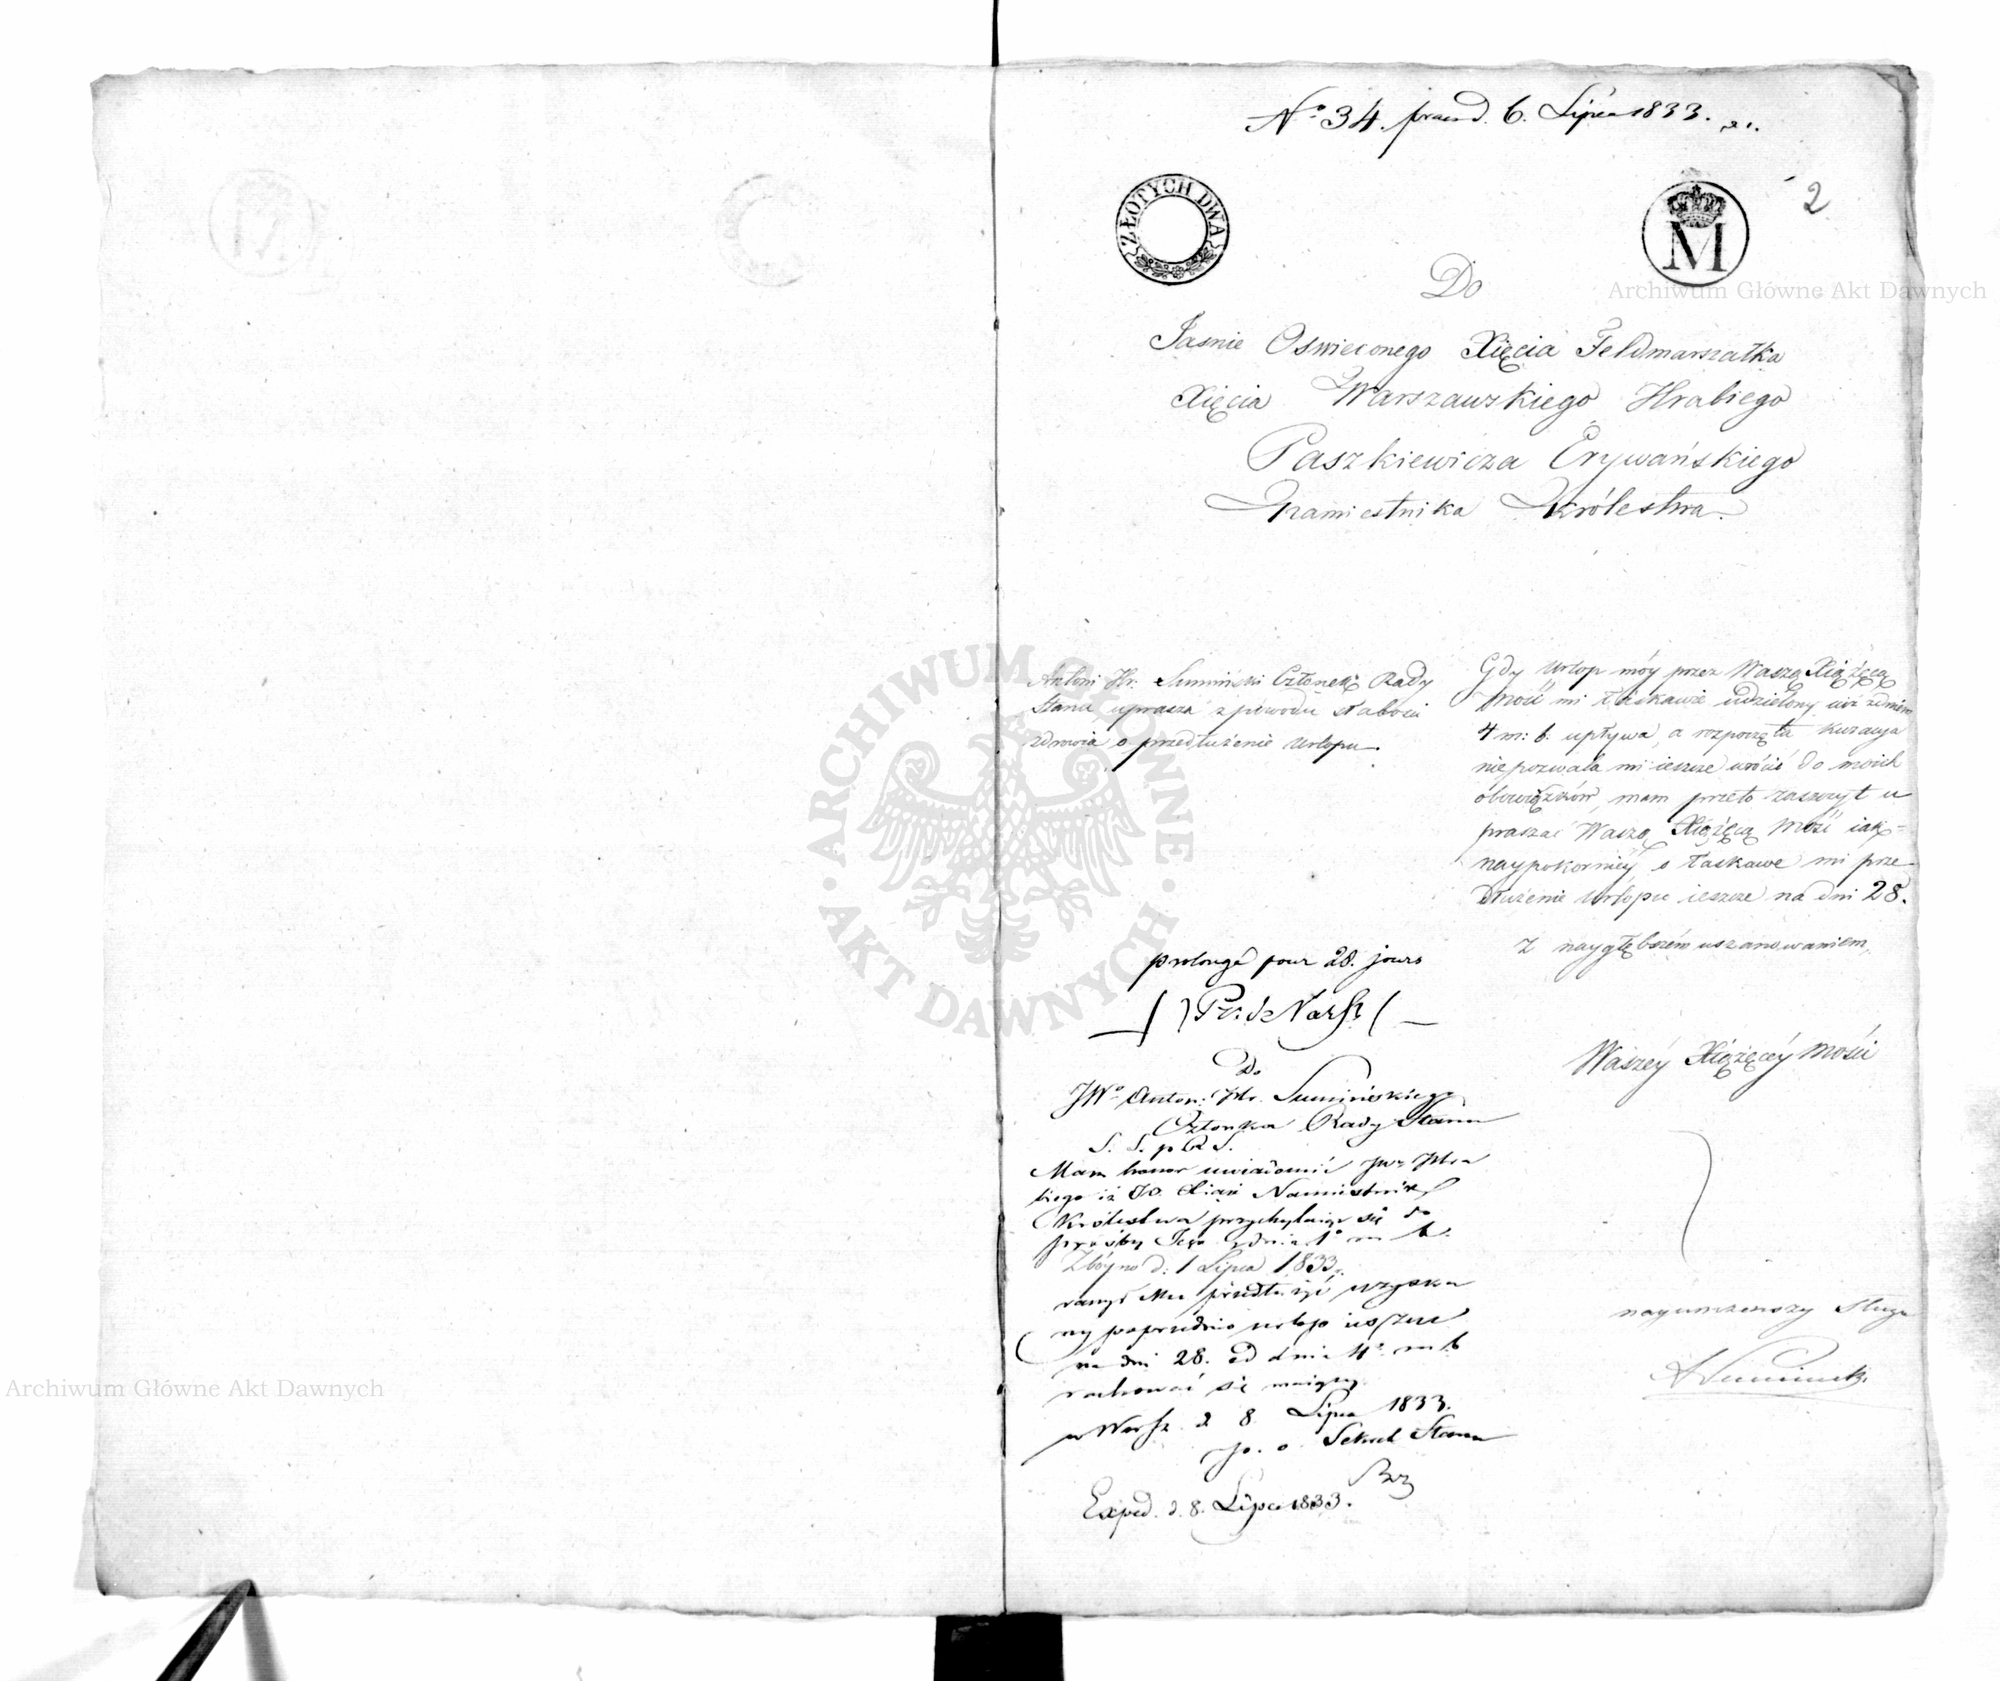 No 34. praes d. 6. Lipca 1833.
ZŁOTYCH DWA
M
2
Do
Jasnie Oswieconego Xięcia Feldmarszałka
Xięcia Warszawskiego Hrabiego
Paszkiewicza Erywańskiego
Namiestnika Królestwa.
Antoni Hr: Sumiński Członek Rady
Stanu, uprasza z powodu słabości
zdrowia o przedłużenie Urlopu.
Gdy Urlop móy przez Waszą Xiążęcą
Mość mi łaskawie udzielony już z dniem
4 m: b. upływa, a rozpoczęta kuracya
niepozwala mi ieszcze wrócić do moich
obowiązków, mam przeto zaszczyt u
praszać Waszą Xiążęcą Mość iak=
naypokorniey o łaskawe mi prze-
dłużenie Urlopu ieszcze na dni 28.
Z naygłębszém uszanowaniem,
Waszéy Xiążęcéy Mości
nayuniższy Sługa
ASumiński
prolongé pour 28. jours
Pr: de Varso:
Do
JWo Anton: Hr. Sumińskiego
Członka Rady Stanu
S. S. p R S.
Mam honor uwiadomić JWo Hra
biego iż JO. Xiąże Namiestnik
Królestwa przychylaiąc się do
prośby Jego z dnia 1o m b.
Zbóyno d: 1 Lipca 1833.
raczył Mu przedłużyć uzyska
ny poprzednio urlop ieszcze
na dni 28. od dnia 4o m b
rachować się maiący.
w Warsz. d 8 Lipca 1833.
p. o. Sekret Stanu
Exped. d. 8. Lipca 1833.
ARCHIWUM GŁÓWNE AKT DAWNYCH
Archiwum Główne Akt Dawnych
Archiwum Główne Akt Dawnych